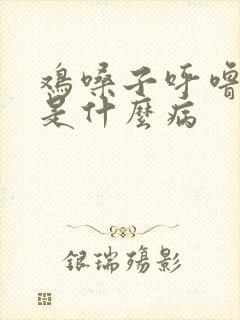 鸡嗓子呼噜
是什麼病
银瑞殇影